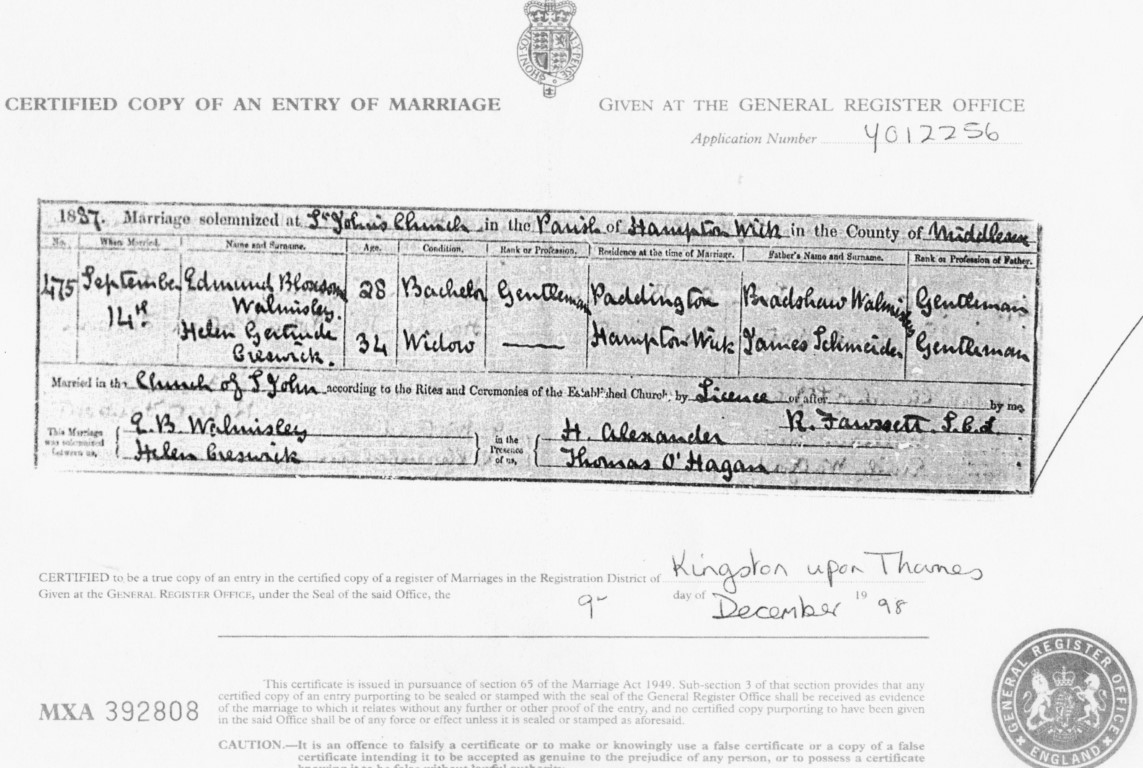 CERTIFIED COPY OF AN ENTRY OF MARRIAGE
GIVEN AT THE GENERAL REGISTER OFFICE
Application Number Y012256
1887. Marriage solemnized at St John's Church in the Parish of Hampton Wick in the County of Middlesex
No. When Married. Name and Surname. Age. Condition. Rank or Profession. Residence at the time of Marriage. Father's Name and Surname. Rank or Profession of Father.
475 September Edmund Blossom 28 Bachelor Gentleman Paddington Bradshaw Walmisley Gentleman
14th Walmisley.
Helen Gertrude 34 Widow — Hampton Wick James Schneider Gentleman
Creswick.
Married in the Church of St John according to the Rites and Ceremonies of the Established Church, by Licence or after by me,
R. Fawssett
This Marriage was solemnized between us, E. B. Walmisley in the Presence of us, H. Alexander
Helen Creswick Thomas O'Hagan
CERTIFIED to be a true copy of an entry in the certified copy of a register of Marriages in the Registration District of Kingston upon Thames
Given at the GENERAL REGISTER OFFICE, under the Seal of the said Office, the 9 day of December 19 98
This certificate is issued in pursuance of section 65 of the Marriage Act 1949. Sub-section 3 of that section provides that any
certified copy of an entry purporting to be sealed or stamped with the seal of the General Register Office shall be received as evidence
of the marriage to which it relates without any further or other proof of the entry, and no certified copy purporting to have been given
in the said Office shall be of any force or effect unless it is sealed or stamped as aforesaid.
MXA 392808
CAUTION.—It is an offence to falsify a certificate or to make or knowingly use a false certificate or a copy of a false
certificate intending it to be accepted as genuine to the prejudice of any person, or to possess a certificate
knowing it to be false without lawful authority.
GENERAL REGISTER OFFICE
ENGLAND